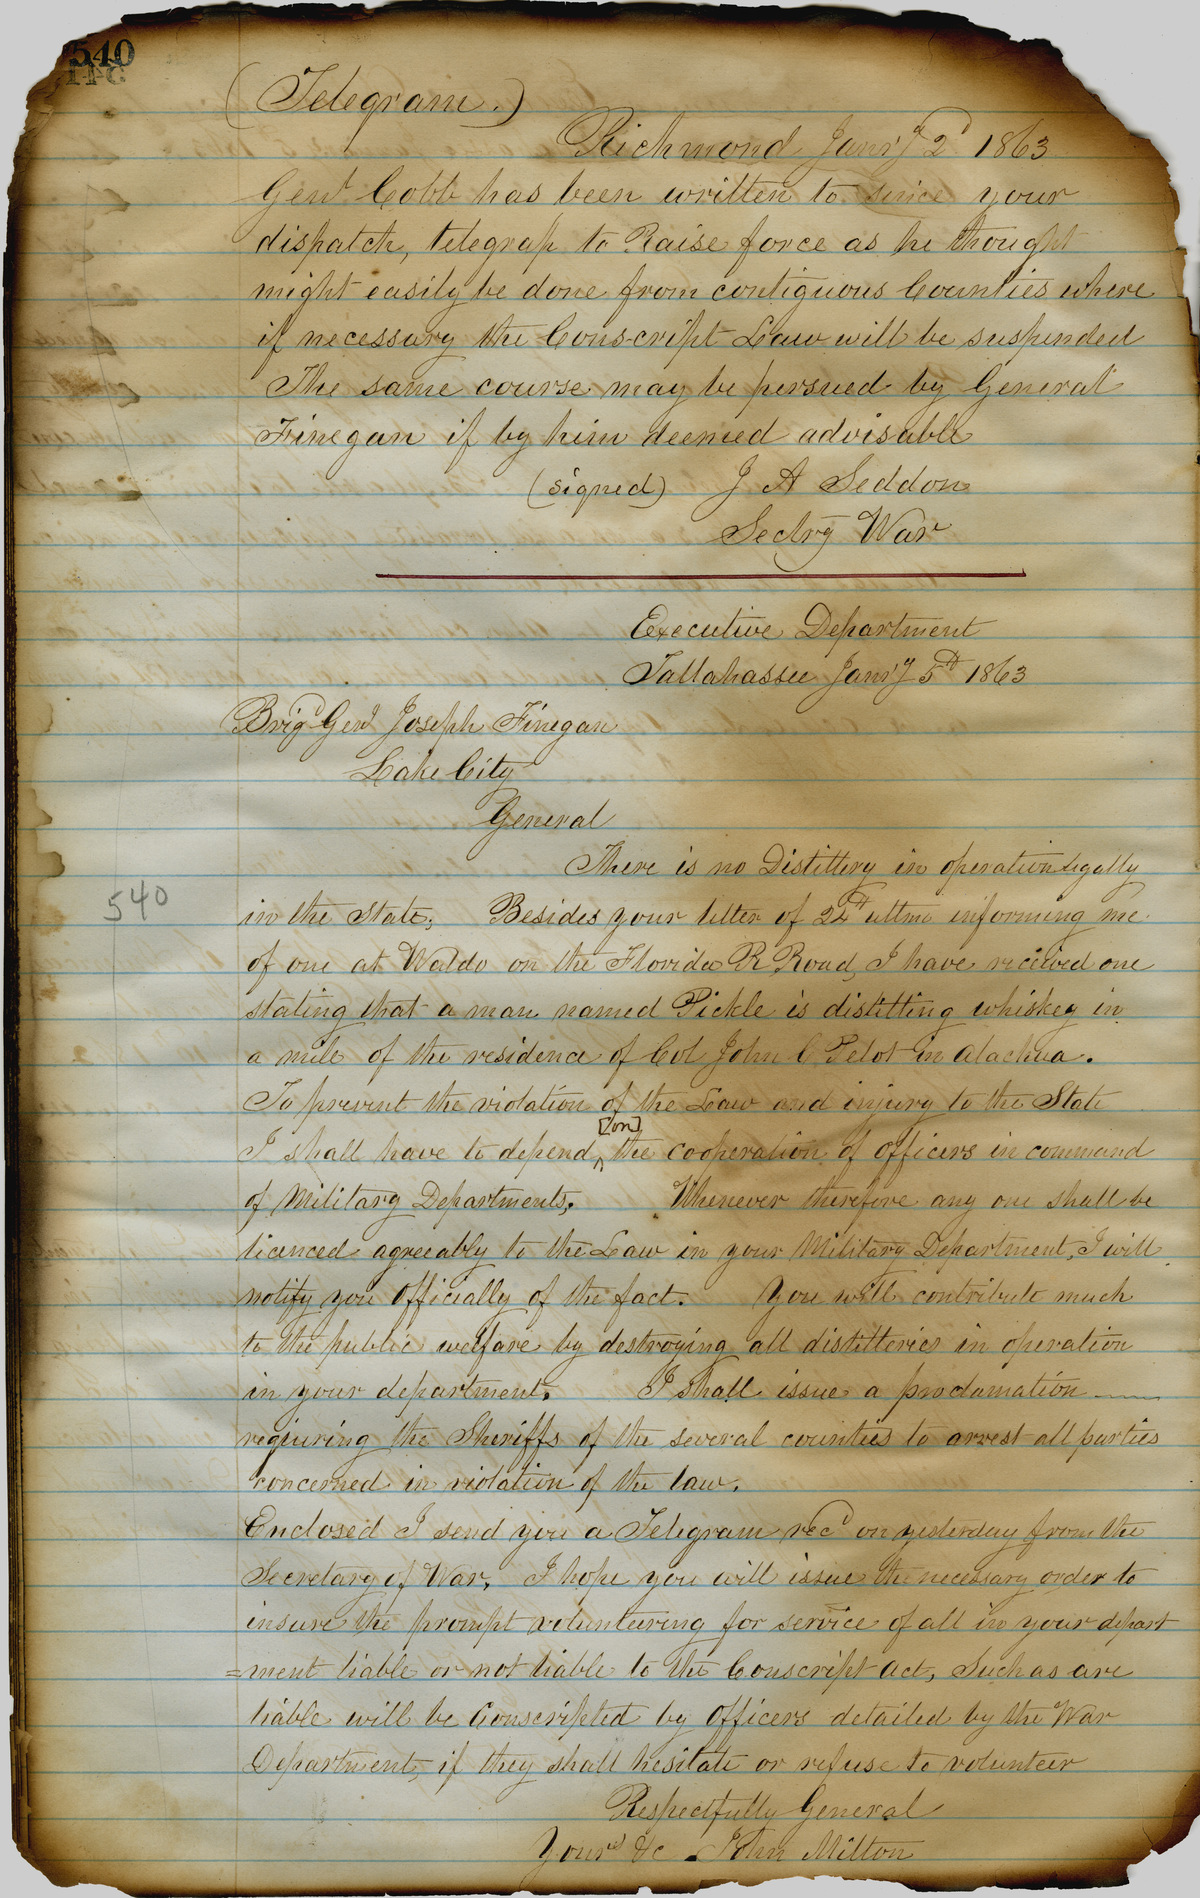 540
541
(Telegram.)
Richmond Jan'y 2d 1863
Genl Cobb has been written to since your
dispatch, telegrap to Raise force as he thought
might easily be done from contiguous Counties where
if necessary the Conscript Law will be suspended
The same course may be persued by General
Finegan if by him deemed advisable
(signed) J A Seddon
Sectry War
Executive Department
Tallahassee Jan'y 5th 1863
Brigd Genl Joseph Finegan
Lake City
General
There is no Distillery in operation legally
540
in the State; Besides your letter of 24th ultmo informing me
of one at Waldo on the Florida R Road, I have received one
stating that a man named Pickle is distilling whiskey in
a mile of the residence of Col John C Pelot in Alachua.
To prevent the violation of the Law and injury to the State
[on]
I shall have to depend ^ the cooperation of officers in command
of Military Departments. Whenever therefore any one shall be
licenced agreeably to the Law in your Military Department, I will
notify you officially of the fact. You will contribute much
to the public welfare by destroying all distilleries in operation
in your department. I shall issue a proclamation
requiring the Sheriffs of the several counties to arrest all parties
concerned in violation of the law.
Enclosed I send you a Telegram recd on yesterday from the
Secretary of War, I hope you will issue the necessary order to
insure the prompt volunteering for service of all in your depart
=ment liable or not liable to the Conscript Act, Such as are
liable will be Conscripted by officers detailed by the War
Department, if they shall hesitate or refuse to volunteer
Respectfully General
Yours &c. John Milton